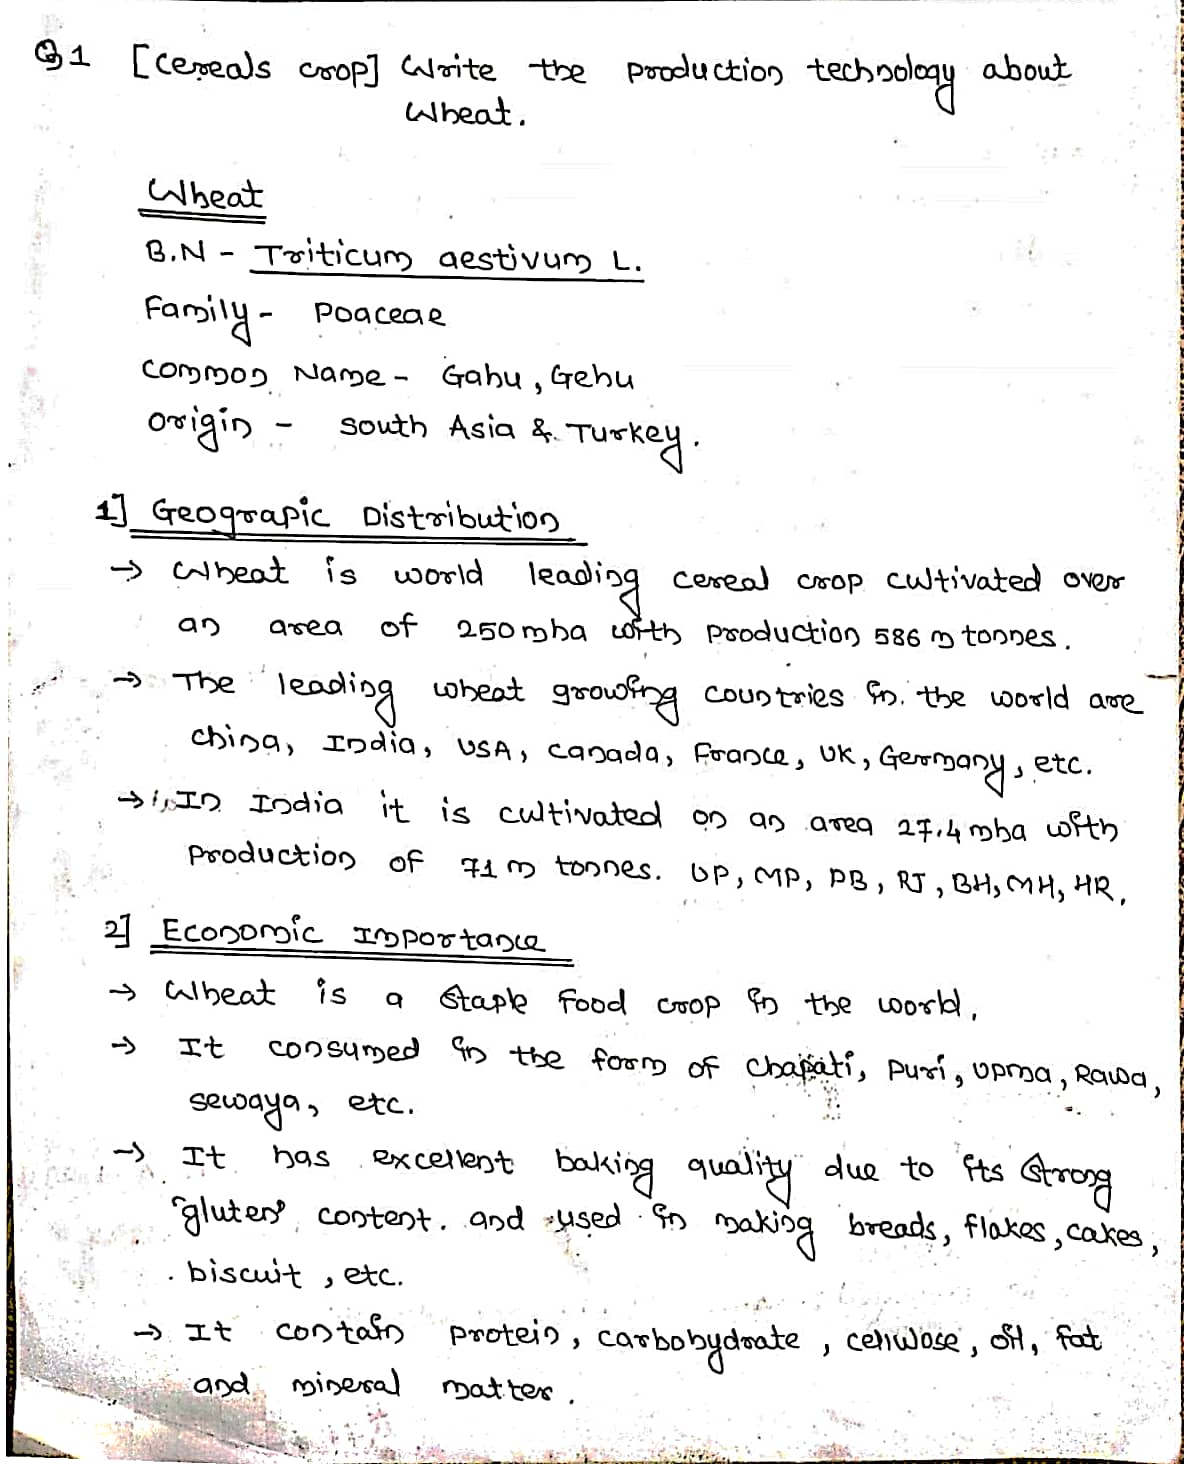 Q1 [cereals crop] Write the production technology about
Wheat.
Wheat
B.N - Triticum aestivum L.
Family - Poaceae
common Name - Gahu, Gehu
origin - south Asia & Turkey.
1] Geograpic Distribution
→ Wheat is world leading cereal crop cultivated over
an area of 250 mha with production 586 m tonnes.
→ The leading wheat growing countries in the world are
china, India, USA, canada, France, UK, Germany, etc.
→ In India it is cultivated on an area 27.4 mha with
production of 71 m tonnes. UP, MP, PB, RJ, BH, MH, HR,
2] Economic Importance
→ Wheat is a staple food crop in the world,
→ It consumed in the form of chapati, puri, upma, Rawa,
sewaya, etc.
→ It has excellent baking quality due to its strong
"gluten" content. and used in making breads, flakes, cakes,
biscuit, etc.
→ It contain protein, carbohydrate, cellulose, oil, fat
and mineral matter.